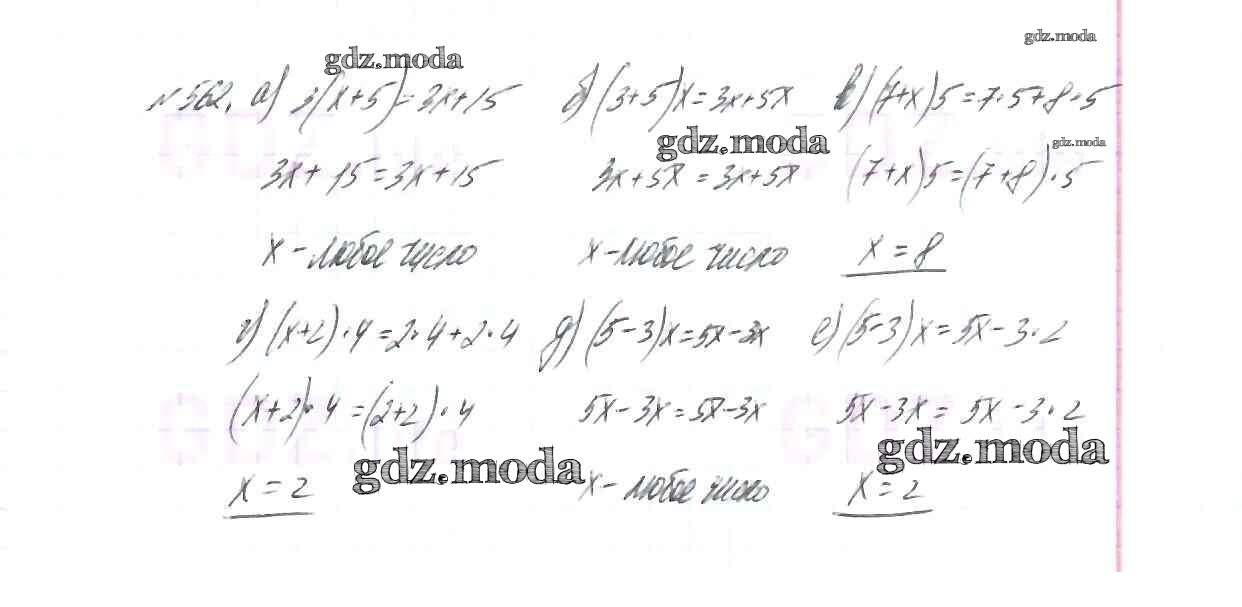 gdz.moda
gdz.moda
№562. а) 3(х+5)=3х+15 б) (3+5)х=3х+5х в) (7+х)5=7·5+8·5
gdz.moda
gdz.moda
3х+15=3х+15 3х+5х=3х+5х (7+х)5=(7+8)·5
х-любое число х-любое число х=8
г) (х+2)·4=2·4+2·4 д) (5-3)х=5х-3х е) (5-3)х=5х-3·2
(х+2)·4=(2+2)·4 5х-3х=5х-3х 5х-3х=5х-3·2
gdz.moda
gdz.moda
х=2 х-любое число х=2